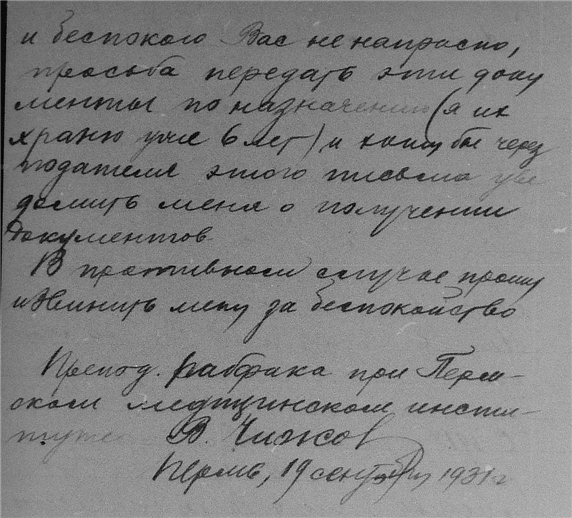 и беспокою Вас не напрасно,
просьба передать эти доку
менты по назначению (я их
храню уже 6 лет) и хотя бы через
подателя этого письма уве
домить меня о получении
документов
В противном случае прошу
извинить меня за беспокойство
Препод. рабфака при Перм-
ском медицинском инсти-
туте В. Чижов
Пермь, 19 сентября 1931 г